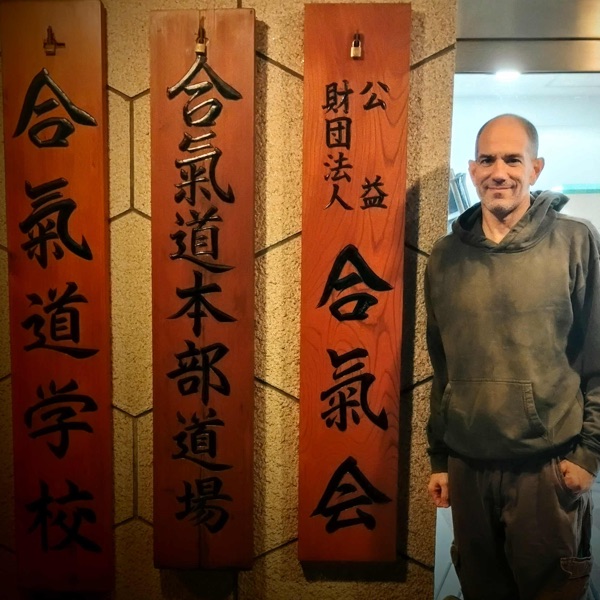 公益
財団法人
合氣会
合氣道本部道場
合氣道学校